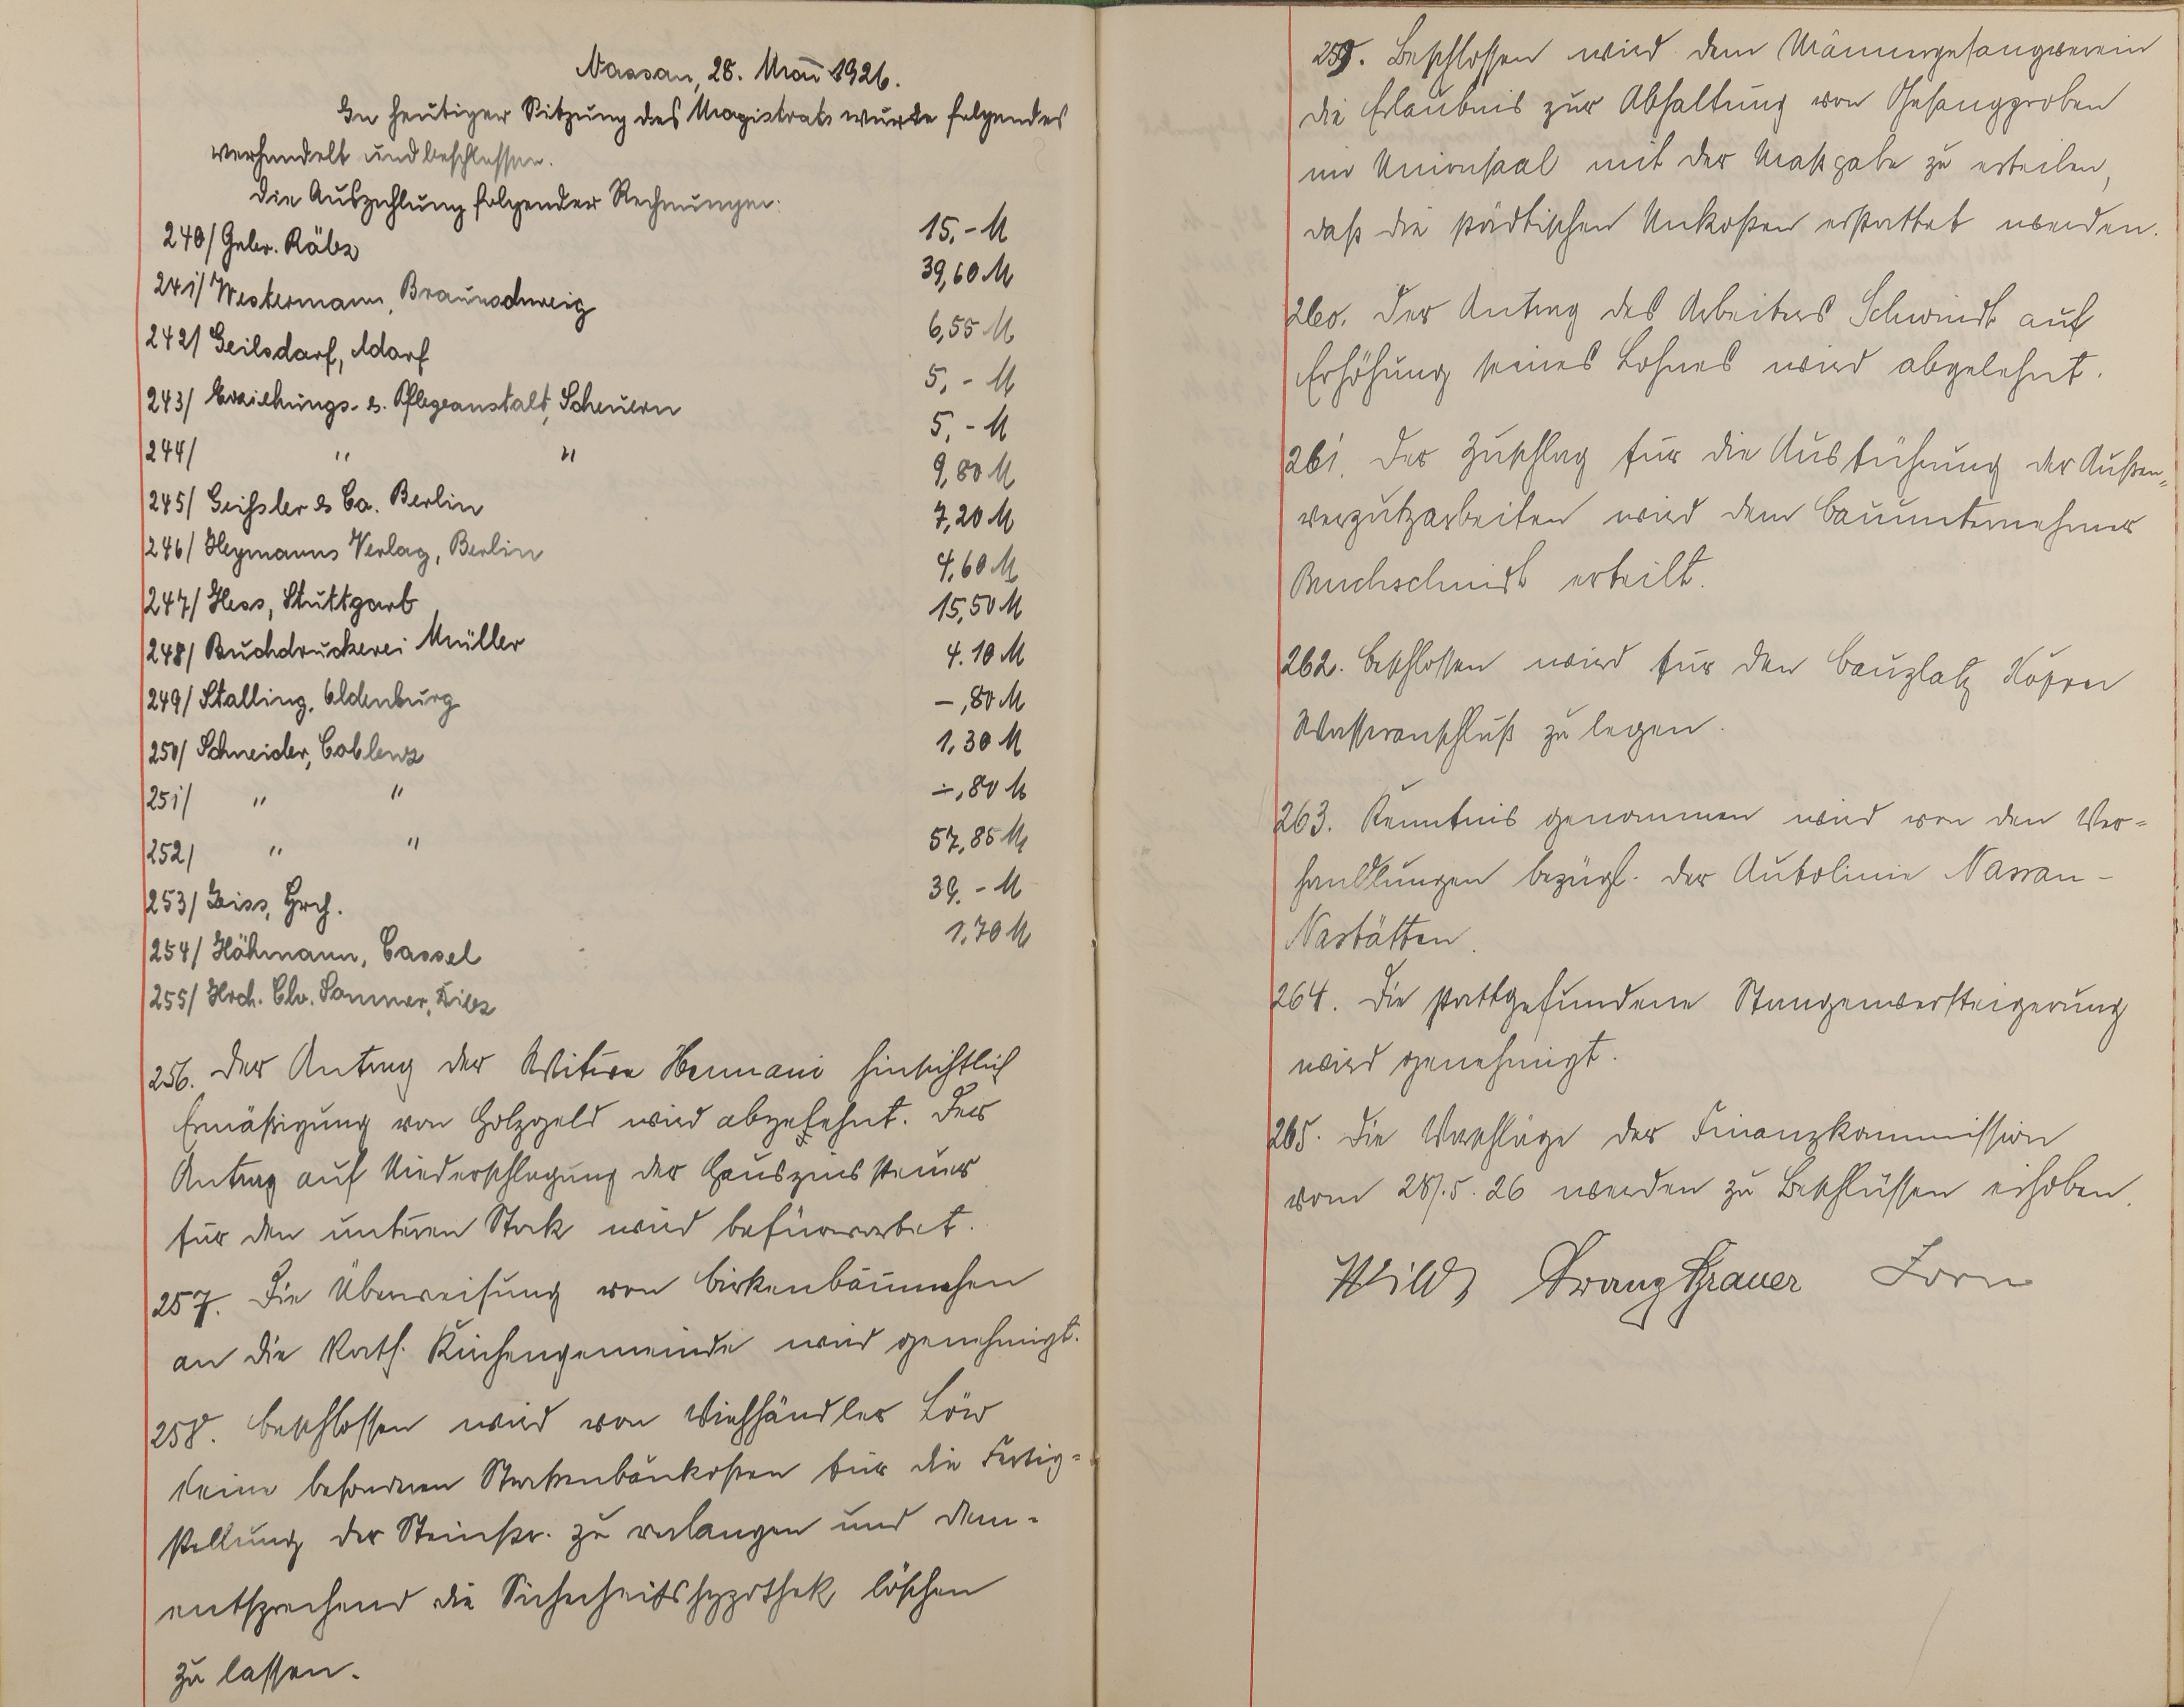 Nassau, 28. Mai 1926.
In heutiger Sitzung des Magistrats wurde folgendes
verhandelt und beschlossen.
Die Auszahlung folgender Rechnungen:
240/ Gebr. Räbz 15,- M
241/ Westermann, Braunschweig 39,60 M
242/ Geilsdorf, Adorf 6,55 M
243/ Erziehungs- & Pflegeanstalt, Scheuern 5,- M
244/ " " 5,- M
245/ Geißler & Co. Berlin 9,80 M
246/ Heymanns Verlag, Berlin 7,20 M
247/ Hess, Stuttgart 4,60 M
248/ Buchdruckerei Müller 15,50 M
249/ Stalling, Oldenburg 4.10 M
250/ Schneider, Coblenz -,80 M
251/ " " 1,30 M
252/ " " -,80 M
253/ Geiss, Hrch. 57,85 M
254/ Höhmann, Cassel 39,- M
255/ Hrch. Chr. Sommer, Diez 1,70 M
256. Der Antrag der Witwe Hermani hinsichtlich
Ermäßigung von Holzgeld wird abgelehnt. Der
Antrag auf Niederschlagung der Hauszinssteuer
für den unteren Stock wird befürwortet.
257. Die Überweisung von Birkenbäumchen
an die Kath. Kirchengemeinde wird genehmigt.
258. Beschlossen wird von Viehhändler Löw
keine besonderen Straßenbaukosten für die Fertig=
stellung der Steinstr. zu verlangen und dem-
entsprechend die Sicherheitshypothek löschen
zu lassen.
259. Beschlossen wird dem Männergesangverein
die Erlaubnis zur Abhaltung von Gesangproben
im Unionsaal mit der Maßgabe zu erteilen,
daß die städtischen Unkosten erstattet werden.
260. Der Antrag des Arbeiters Schwindt auf
Erhöhung seines Lohnes wird abgelehnt.
261. Der Zuschlag für die Ausführung der Außen=
verputzarbeiten wird dem Bauunternehmer
Buchschmidt erteilt.
262. Beschlossen wird für den Bauplatz
Wasseranschluß zu legen.
263. Kenntnis genommen wird von den Ver=
handlungen bezügl. der Autolinie Nassau-
Nastätten.
264. Die stattgefundene Stangenversteigerung
wird genehmigt.
265. Die Vorschläge der Finanzkommission
vom 28/.5. 26 werden zu Beschlüssen erhoben.
Wild Franz Grauer Zorn